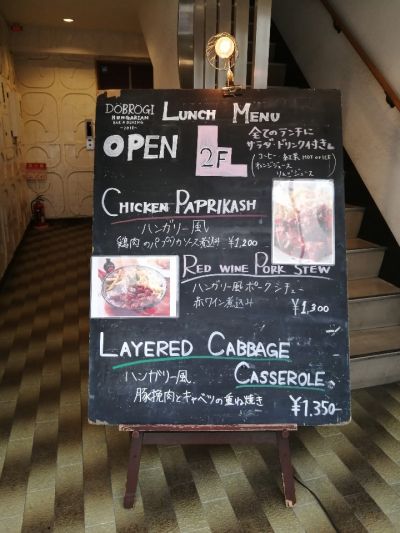 DOBROGI
HUNGARIAN
BAR & DINING
-2015-
LUNCH MENU
OPEN
2F
全てのランチに
サラダ・ドリンク付き
コーヒー 紅茶 HOT or ICE
オレンジジュース
りんごジュース
CHICKEN PAPRIKASH
ハンガリー風
鶏肉のパプリカソース煮込み ¥1,200
RED WINE PORK STEW
ハンガリー風ポークシチュー
赤ワイン煮込み
¥1,300
LAYERED CABBAGE
CASSEROLE
ハンガリー風
豚挽肉とキャベツの重ね焼き
¥1,350-